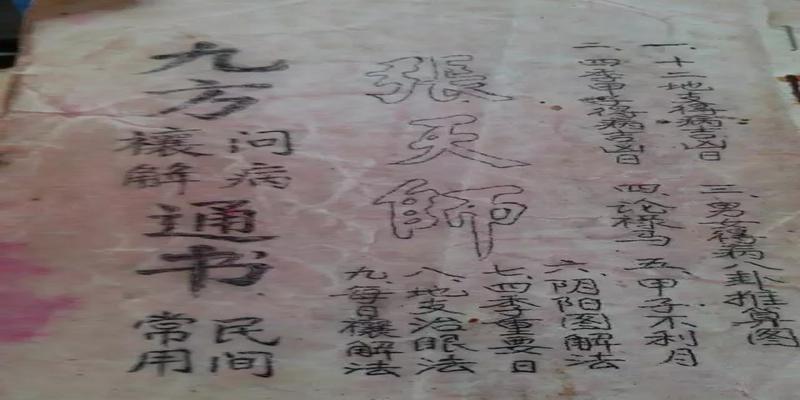 一、十二地支得病吉凶日
二、四季得病吉凶日
三、男女得病八卦推算图
四、论禄马 五、甲子不利月
六、阴阳图解法
七、四季重要日
八、地支治眼法
九、每日禳解法
張天師
九方
问病
禳解
通书
民间
常用